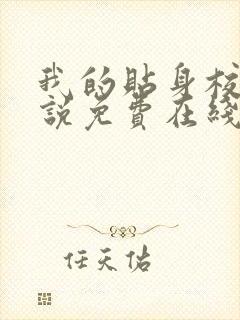 我的贴身校
説免費在綫
任天佑